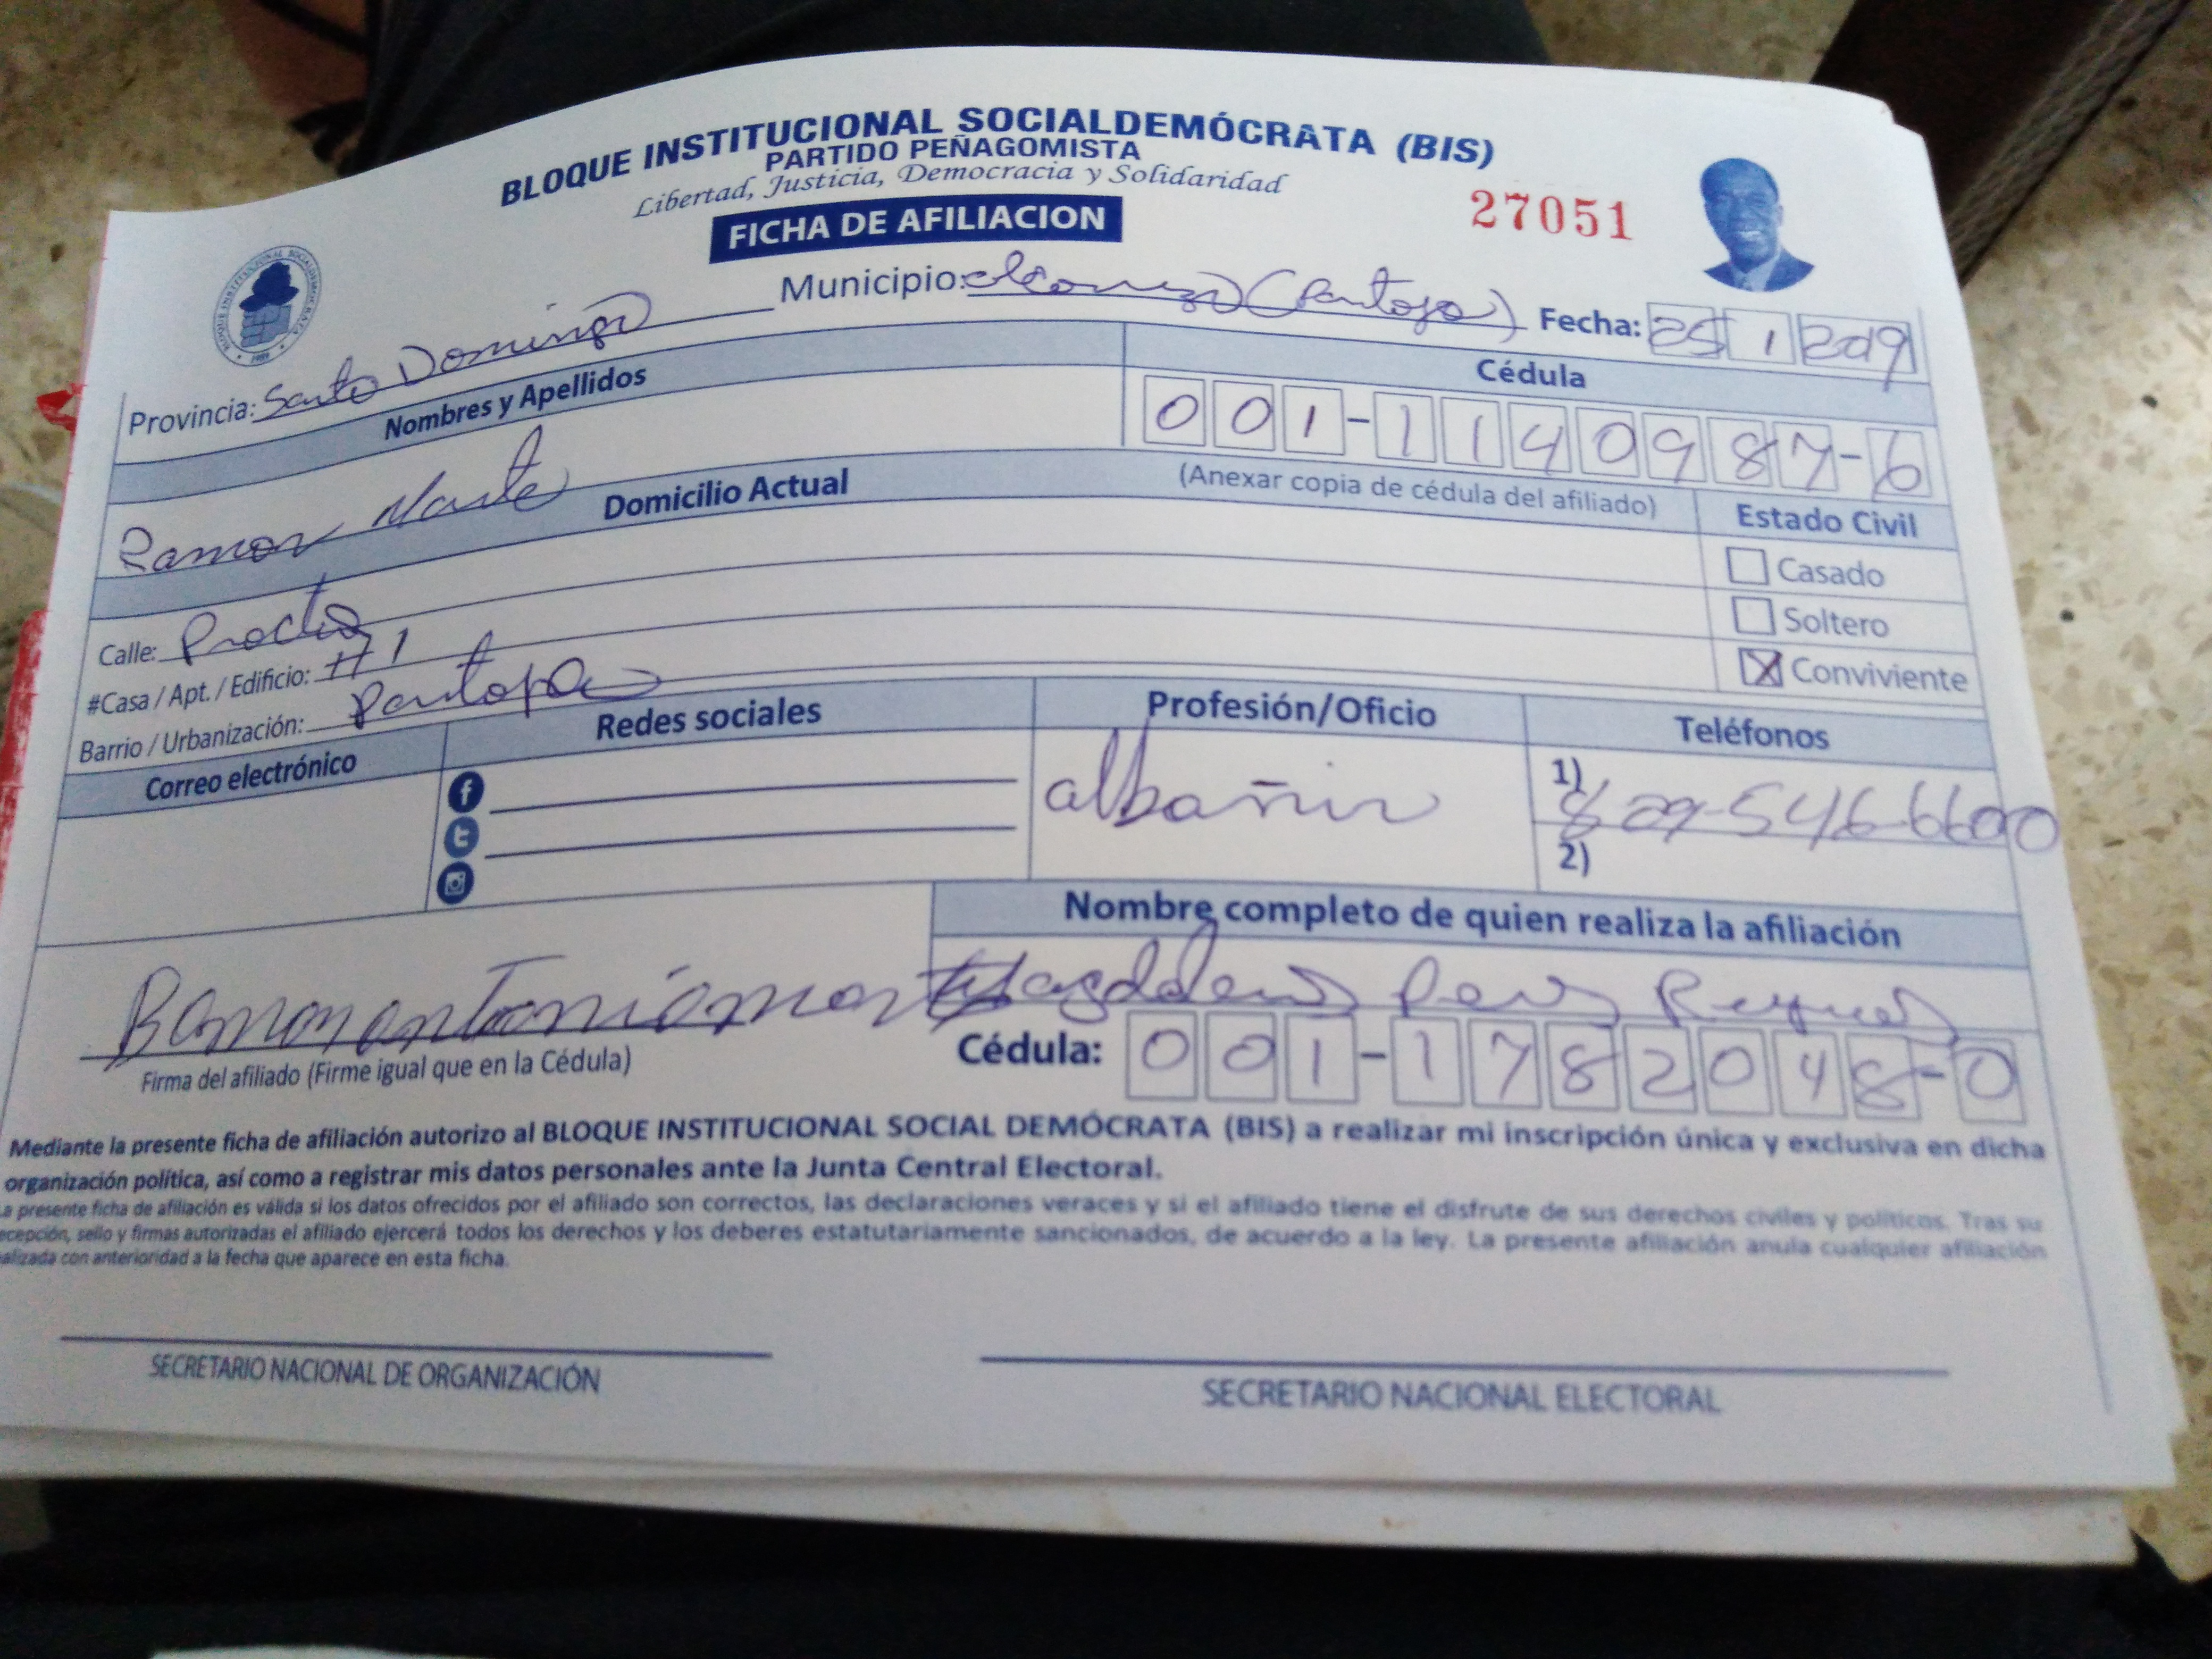 BLOQUE INSTITUCIONAL SOCIALDEMÓCRATA (BIS)
PARTIDO PEÑAGOMISTA
Libertad, Justicia, Democracia y Solidaridad
FICHA DE AFILIACION
27051
BLOQUE INSTITUCIONAL SOCIALDEMOCRATA
Provincia: Santo Domingo Municipio: (Pantoja) Fecha: 25 1 2019
Nombres y Apellidos Cédula
Ramon Marte 001-1140987-6
Domicilio Actual (Anexar copia de cédula del afiliado) Estado Civil
Casado
Soltero
X Conviviente
Calle:
#Casa / Apt. / Edificio: # 1
Barrio / Urbanización: Pantoja
Correo electrónico Redes sociales Profesión/Oficio Teléfonos
albañir 1) 829-546-6600
2)
Nombre completo de quien realiza la afiliación
Ramon antonio marte
Firma del afiliado (Firme igual que en la Cédula) Cédula: 001-1782048-0
Mediante la presente ficha de afiliación autorizo al BLOQUE INSTITUCIONAL SOCIAL DEMÓCRATA (BIS) a realizar mi inscripción única y exclusiva en dicha
organización política, así como a registrar mis datos personales ante la Junta Central Electoral.
a presente ficha de afiliación es válida si los datos ofrecidos por el afiliado son correctos, las declaraciones veraces y si el afiliado tiene el disfrute de sus derechos civiles y políticos. Tras su
ecepción, sello y firmas autorizadas el afiliado ejercerá todos los derechos y los deberes estatutariamente sancionados, de acuerdo a la ley. La presente afiliación anula cualquier afiliación
alizada con anterioridad a la fecha que aparece en esta ficha.
SECRETARIO NACIONAL DE ORGANIZACIÓN SECRETARIO NACIONAL ELECTORAL